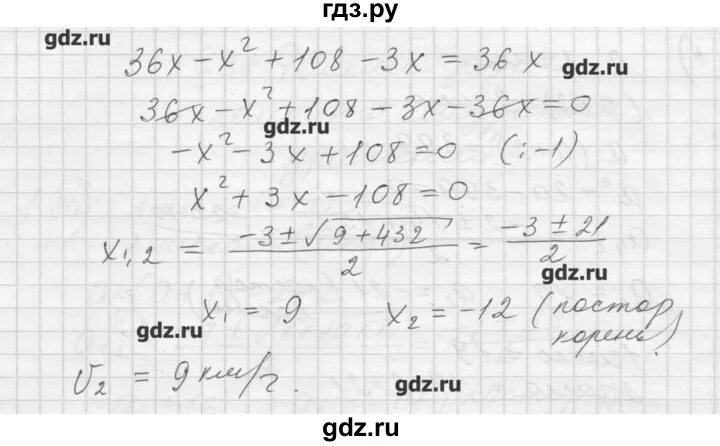 гдз.ру
gdz.ru
36x - x² + 108 - 3x = 36x
gdz.ru
36x - x² + 108 - 3x - 36x = 0
gdz.ru
-x² - 3x + 108 = 0 (: -1)
x² + 3x - 108 = 0
x₁,₂ = (-3 ± √(9 + 432))/2 = (-3 ± 21)/2
gdz.ru
x₁ = 9 x₂ = -12 (постор. корень)
gdz.ru
V₂ = 9 км/г.
gdz.ru
гдз.ру